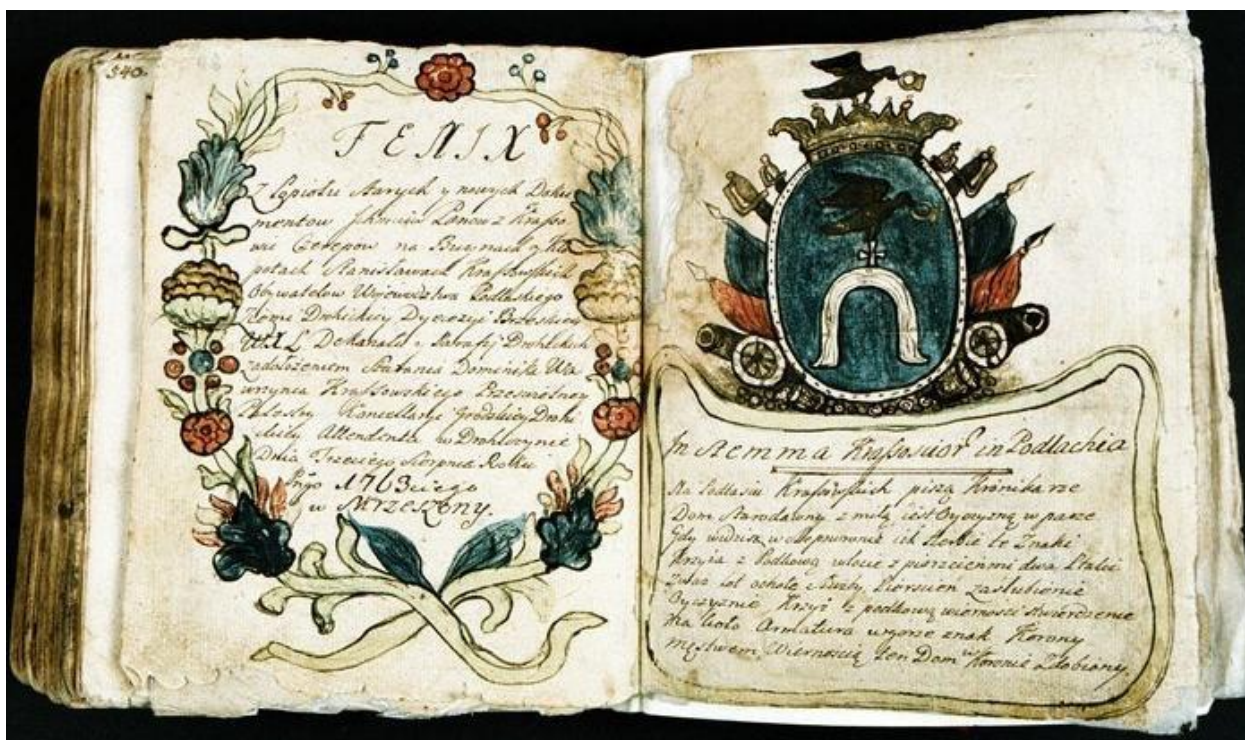 540.
FENIX
Z Popiołu Starych y nowych Doku
mentow Ichmciow Panow z Krasso
wa Czerepow na Buynach y Kło
potach Stanisławach Krassowskich
Obywatelow Wojewodztwa Podlaskiego
Ziemi Drohickiey Dyecezyi Brzeskiey
Dekanatu y Parafij Drohickich
za dołożeniem Starania Dominika Wa
wrzynca Krassowskiego Przeswietney
Kancellaryi Grodzkiey Drohi
ckiey Attendenta w Drohiczynie
Dnia Trzeciego Sierpnia Roku
1763ciego
Wrzeszony.
In Stemma Krassoviorum in Podlachia
Na Podlasiu Krassowskich piszą Kronikarze
Dom Starodawny z miłą iest Oyczyzną w parze
Gdy widzisz w Slepowronie ich Herbie te Znaki
Krzyża z Podkową wlocie z pierscieniem dwa Ptaki
Ptaka lot ochotę Służby, Pierscień zaślubienie
Oyczyznie Krzyż z podkową wiernosci stwierdzenie
Na koło Armatura w gorze znak Korony
męstwem, Wiernoscią ten Dom w Koronie Zdobiony.